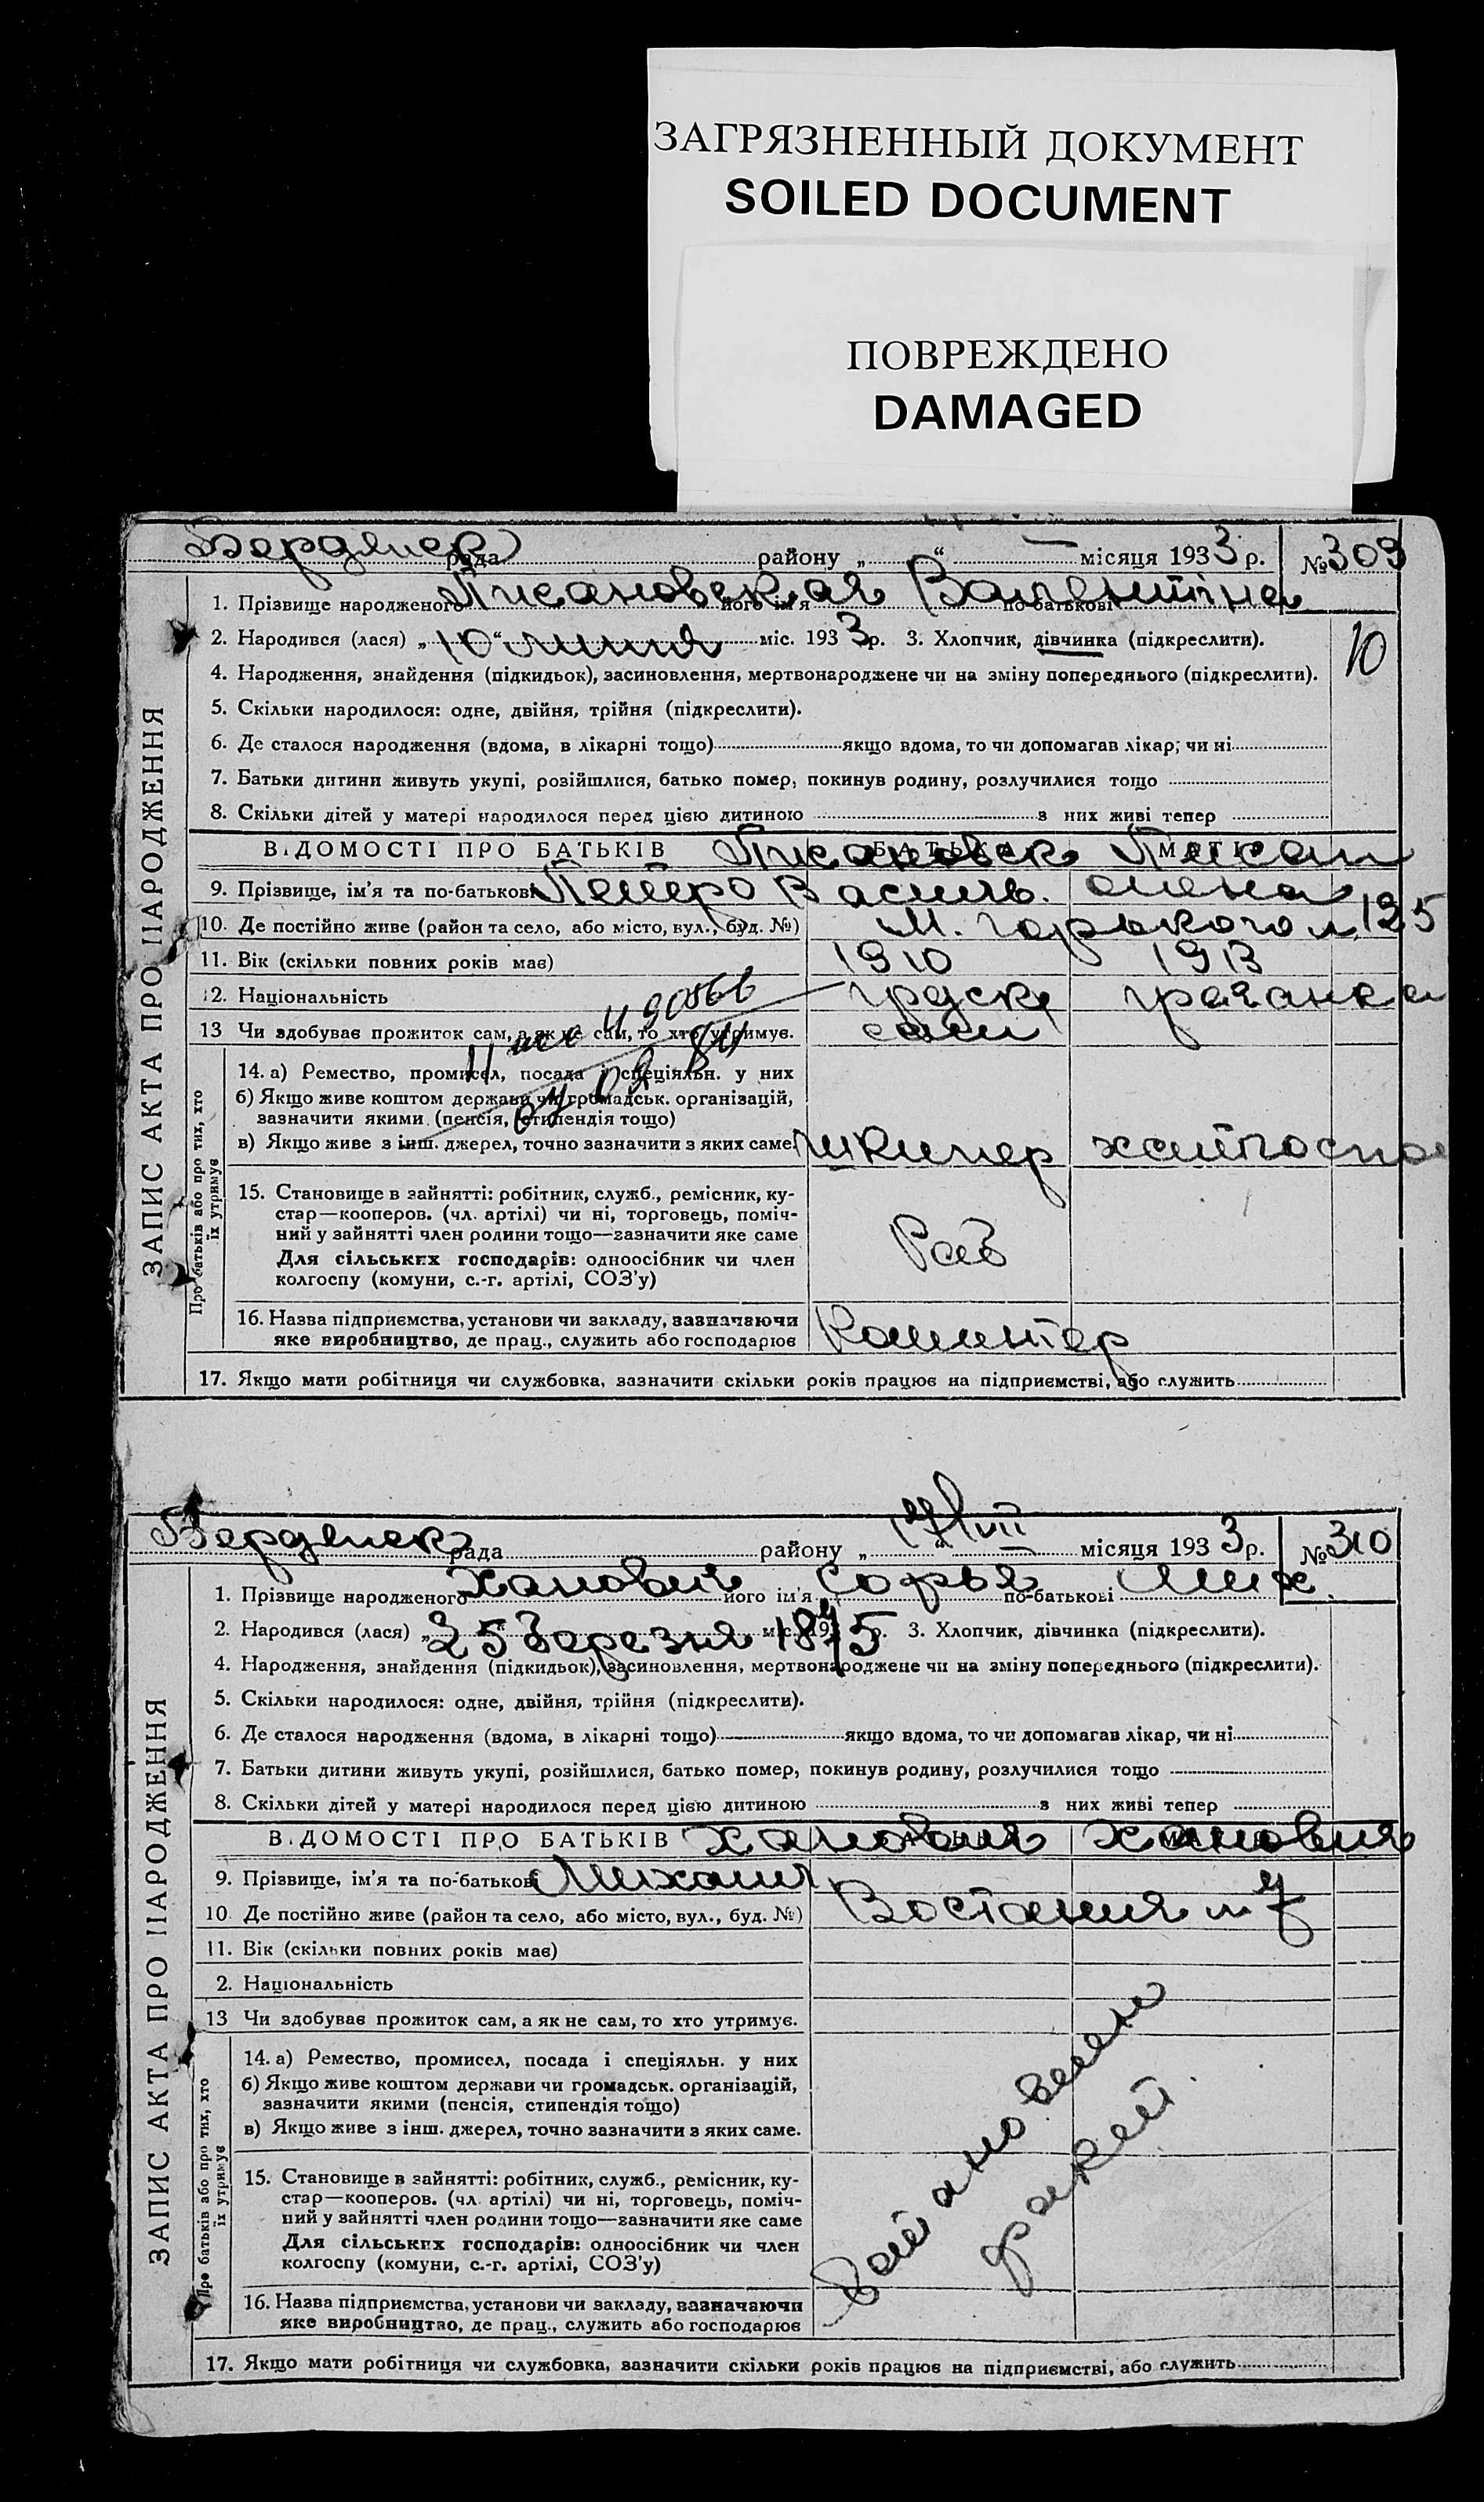 ЗАГРЯЗНЕННЫЙ ДОКУМЕНТ
SOILED DOCUMENT
ПОВРЕЖДЕНО
DAMAGED
ЗАПИС АКТА ПРО НАРОДЖЕННЯ
Бердянск рада району „ “ місяця 1933 р. № 309
1. Прізвище народженого Писановская його ім'я Валентина по-батькові
2. Народився (лася) „10“ липня міс. 1933 р. 3. Хлопчик, дівчинка (підкреслити).
10
4. Народження, знайдення (підкидьок), засиновлення, мертвонароджене чи на зміну попереднього (підкреслити).
5. Скільки народилося: одне, двійня, трійня (підкреслити).
6. Де сталося народження (вдома, в лікарні тощо) якщо вдома, то чи допомагав лікар; чи ні
7. Батьки дитини живуть укупі, розійшлися, батько помер, покинув родину, розлучилися тощо
8. Скільки дітей у матері народилося перед цією дитиною з них живі тепер
ВІДОМОСТІ ПРО БАТЬКІВ БАТЬКА Писановск МАТИ Писан
9. Прізвище, ім'я та по-батькові Петро Василь. олена
10. Де постійно живе (район та село, або місто, вул., буд. №) М. Горького 125
11. Вік (скільки повних років має) 1910 1913
12. Національність
13 Чи здобуває прожиток сам, а як не сам, то хто утримує. сам
Про батьків або про тих, хто їх утримує
14. а) Ремество, промисел, посада і спеціяльн. у них
б) Якщо живе коштом держави чи громадськ. організацій,
зазначити якими (пенсія, стипендія тощо)
в) Якщо живе з інш. джерел, точно зазначити з яких саме. Шкипер хатпоспо
15. Становище в зайнятті: робітник, служб., ремісник, ку-
стар—кооперов. (чл. артілі) чи ні, торговець, поміч-
ний у зайнятті член родини тощо—зазначити яке саме
Раб
Для сільських господарів: одноосібник чи член
колгоспу (комуни, с.-г. артілі, СОЗ'у)
16. Назва підприємства, установи чи закладу, зазначаючи
яке виробництво, де прац., служить або господарює Коминтер
17. Якщо мати робітниця чи службовка, зазначити скільки років працює на підприємстві, або служить
ЗАПИС АКТА ПРО НАРОДЖЕННЯ
Бердянск рада району „ “ VII місяця 1933 р. № 310
1. Прізвище народженого його ім'я Софья по-батькові Мих.
2. Народився (лася) „25 березня міс. 1875 р. 3. Хлопчик, дівчинка (підкреслити).
4. Народження, знайдення (підкидьок), засиновлення, мертвонароджене чи на зміну попереднього (підкреслити).
5. Скільки народилося: одне, двійня, трійня (підкреслити).
6. Де сталося народження (вдома, в лікарні тощо) якщо вдома, то чи допомагав лікар, чи ні
7. Батьки дитини живуть укупі, розійшлися, батько помер, покинув родину, розлучилися тощо
8. Скільки дітей у матері народилося перед цією дитиною з них живі тепер
ВІДОМОСТІ ПРО БАТЬКІВ
9. Прізвище, ім'я та по-батькові Михаил
10. Де постійно живе (район та село, або місто, вул., буд. №) Востания
11. Вік (скільки повних років має)
2. Національність
13 Чи здобуває прожиток сам, а як не сам, то хто утримує.
Про батьків або про тих, хто їх утримує
14. а) Ремество, промисел, посада і спеціяльн. у них
б) Якщо живе коштом держави чи громадськ. організацій,
зазначити якими (пенсія, стипендія тощо)
в) Якщо живе з інш. джерел, точно зазначити з яких саме.
15. Становище в зайнятті: робітник, служб., ремісник, ку-
стар—кооперов. (чл. артілі) чи ні, торговець, поміч-
ний у зайнятті член родини тощо—зазначити яке саме
Для сільських господарів: одноосібник чи член
колгоспу (комуни, с.-г. артілі, СОЗ'у)
16. Назва підприємства, установи чи закладу, зазначаючи
яке виробництво, де прац., служить або господарює
17. Якщо мати робітниця чи службовка, зазначити скільки років працює на підприємстві, або служить